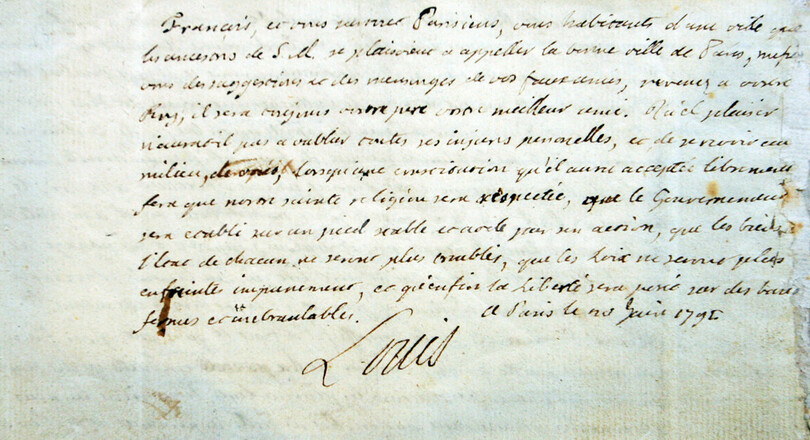 Francois, et vous surtout Parisiens, vous habitants d'une ville que
les ancestres de S. M. se plaisoient a appeller la bonne ville de Paris, mefiés
vous des suggestions et des mensonges de vos faux amis, revenez a votre
Roy, il sera toujours votre pere votre meilleur ami. Quel plaisir
n'aura-t-il pas a oublier toutes ses injures personelles, et de se revoir au
milieu de vous, lorsqu'une constitution qu'il aura acceptée librement
fera que notre sainte religion sera respectée, que le Gouvernement
sera etabli sur un pied stable et utile par son action, que les biens
l'etat de chacun ne seront plus troublés, que les Loix ne seront plus
enfraintes impunement, et qu'enfin la Liberté sera posé sur des bases
fermes et inebranlables.
A Paris le 20 Juin 1791
Louis